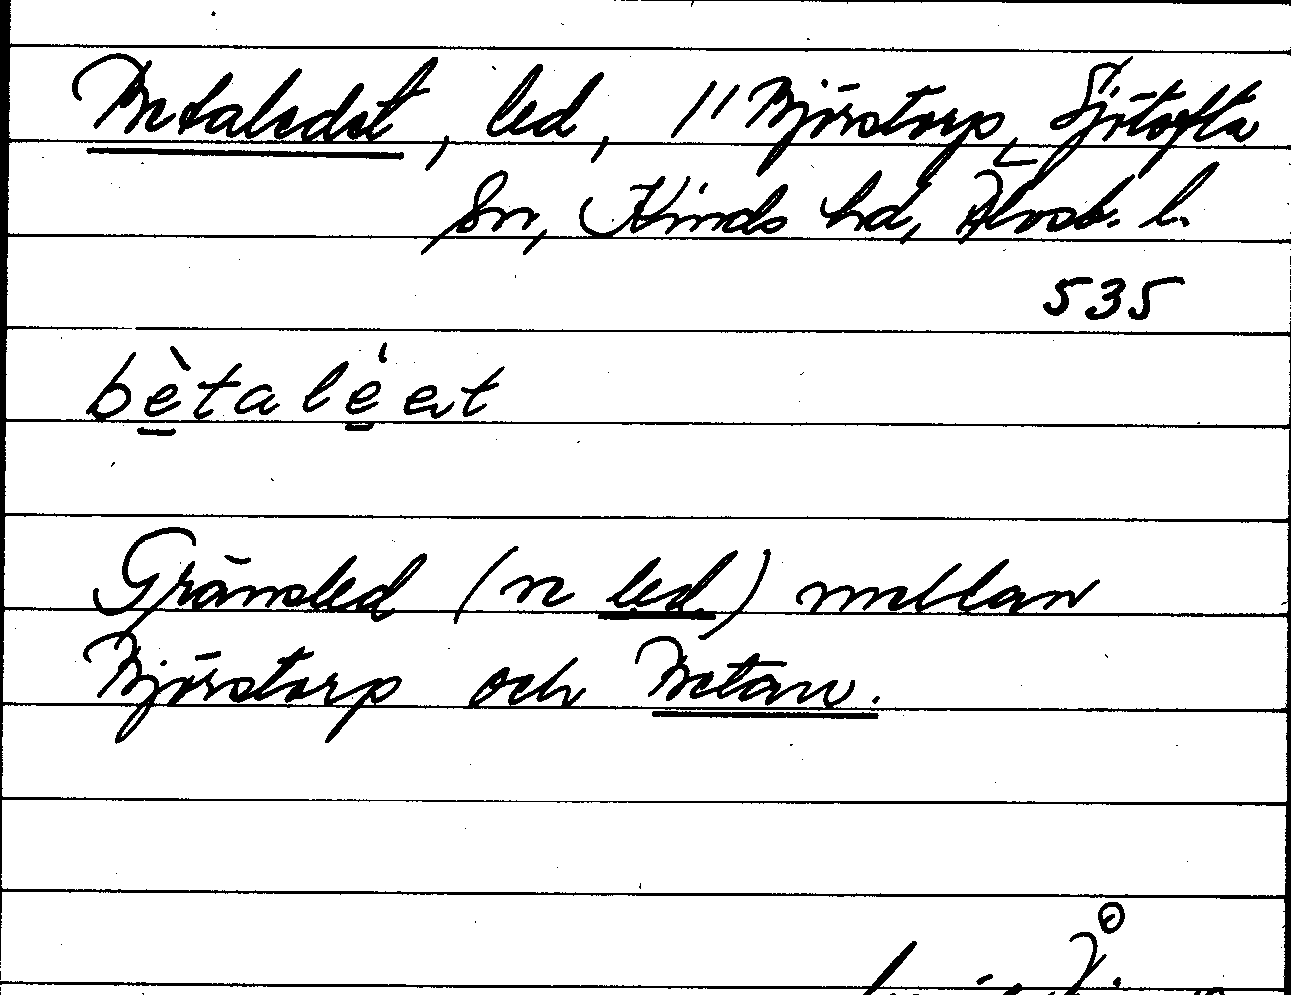 Betaledet, led, 1/1 Björstorp, Sjötofta
sn, Kinds hd, Älvsb. l.
535
bètalèet
Gränsled (n led.) mellan
Björstorp och Betan.